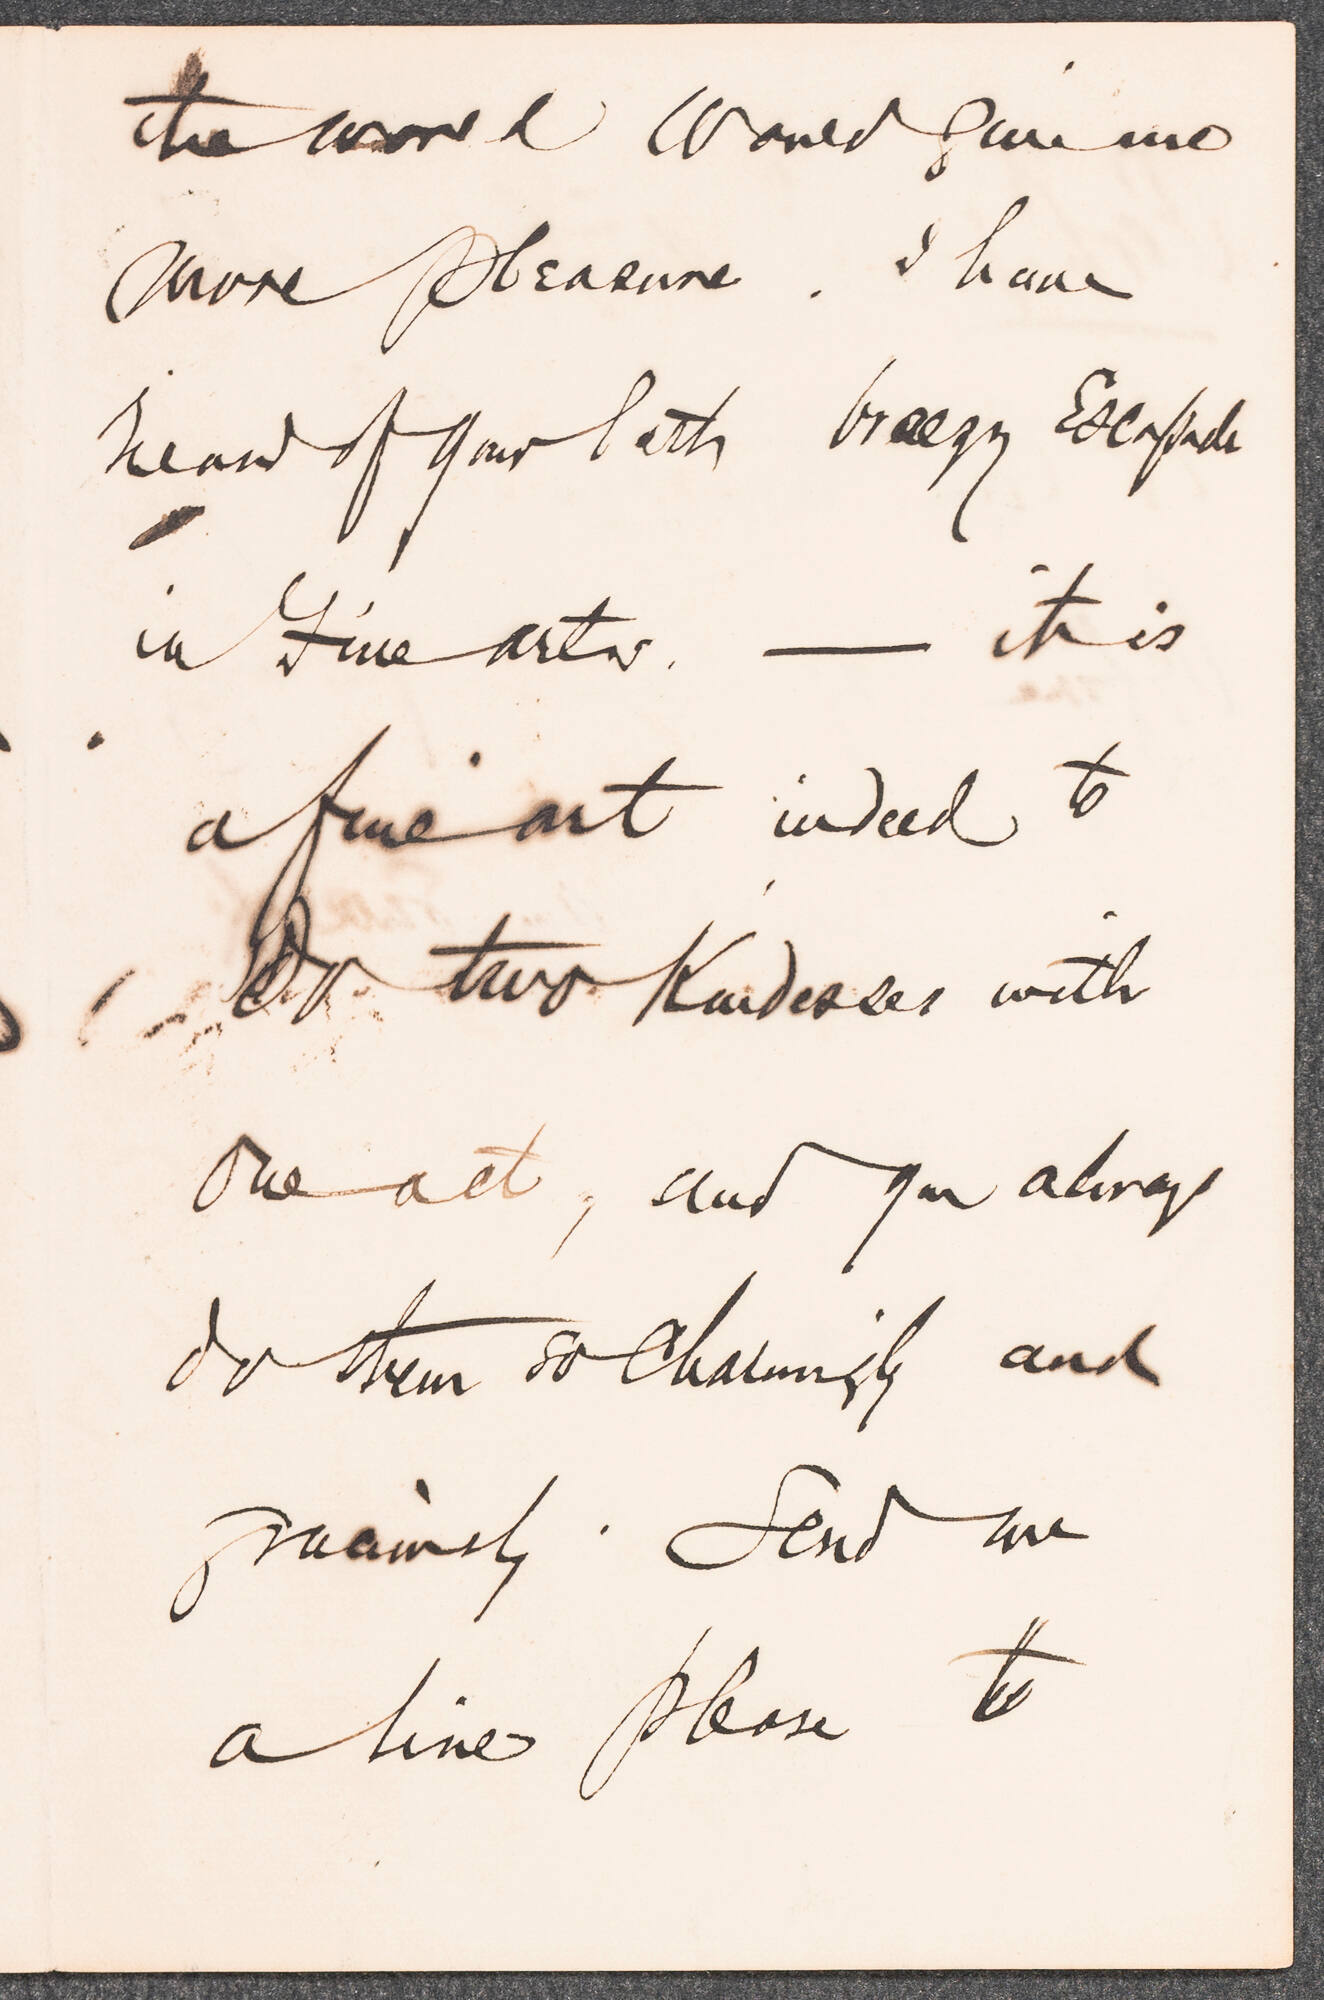 the world would give me
more pleasure. I have
heard of your breezy Escapade
in Fine arts. — it is
a fine art indeed to
Do two Kindesses with
One act, and you always
do them so Charmingly and
graciously. Send me
a line please to